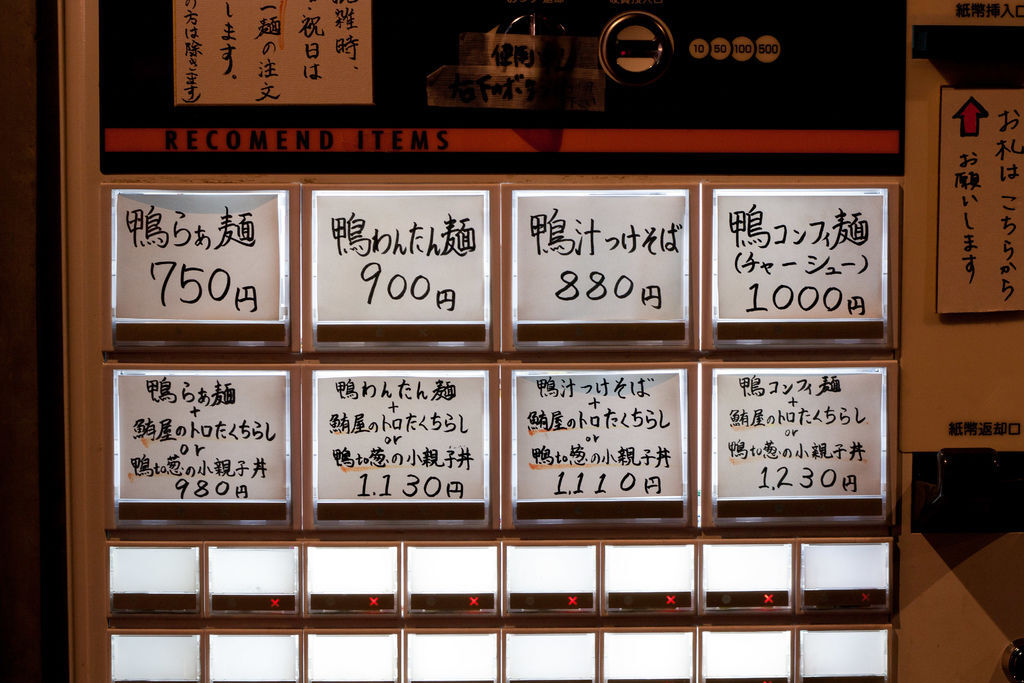 紙幣挿入口
雑時、
祝日は
一麺の注文
します。
の方は除きます)
10 50 100 500
RECOMEND ITEMS
お札は こちらから
お願いします
鴨らぁ麺
750円
鴨わんたん麺
900円
鴨汁つけそば
880円
鴨コンフィ麺
(チャーシュー)
1000円
鴨らぁ麺
+
鮪屋のトロたくちらし
or
鴨to葱の小親子丼
980円
鴨わんたん麺
+
鮪屋のトロたくちらし
or
鴨to葱の小親子丼
1.130円
鴨汁つけそば
+
鮪屋のトロたくちらし
or
鴨to葱の小親子丼
1,110円
鴨コンフィ麺
+
鮪屋のトロたくちらし
or
鴨to葱の小親子丼
1,230円
紙幣返却口